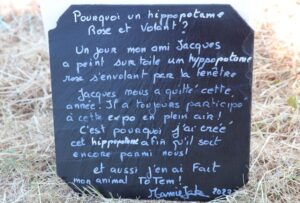 Pourquoi un hippopotame
Rose et Volant?
Un jour mon ami Jacques
a peint sur toile un hyppopotome
rose s'envolant par la fenêtre
Jacques nous a quitté cette
année. Il a toujours participé
à cette expo en plein air!
C'est pourquoi j'ai créé
cet hippopotame afin qu'il soit
encore parmi nous!
et aussi j'en ai Fait
mon animal ToTem!